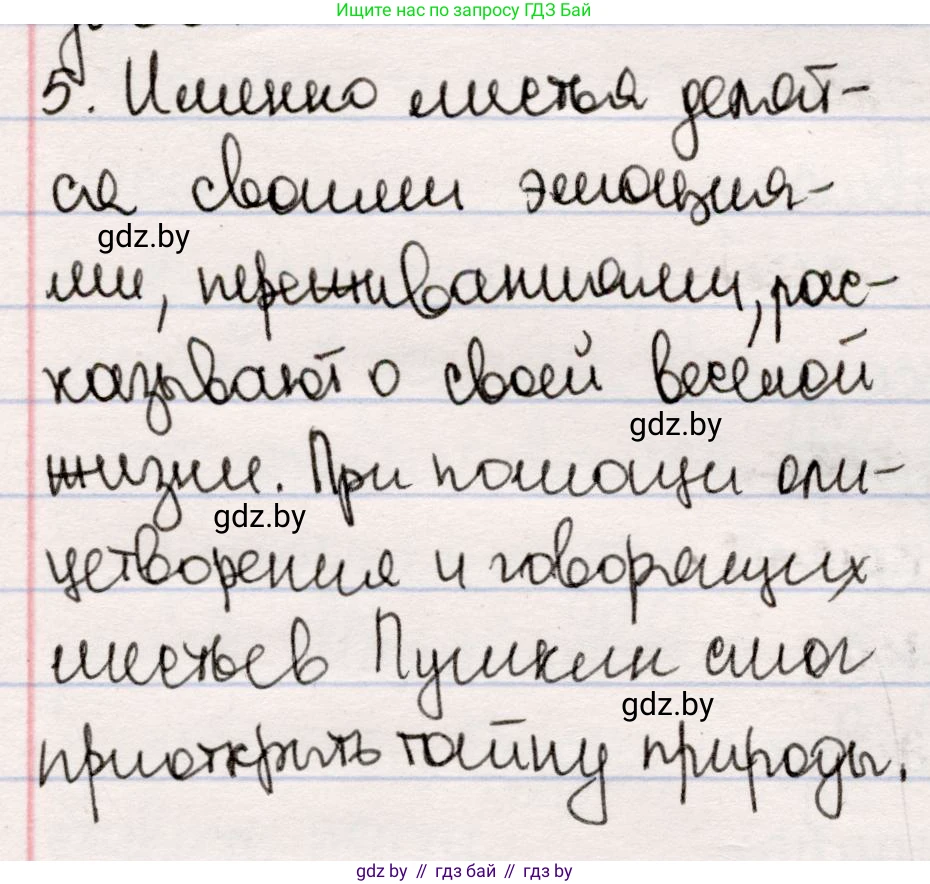 Ищите нас по запросу ГДЗ Бай
5. Именно листья делят-
ся своими эмоция-
gdz.by
ми, переживаниями, рас-
казывают о своей весёлой
gdz.by
жизни. При помощи оли-
gdz.by
цетворения и говорящих
листьев Пушкин смог
gdz.by
приоткрыть тайну природы.
gdz.by // гдз бай // гдз by